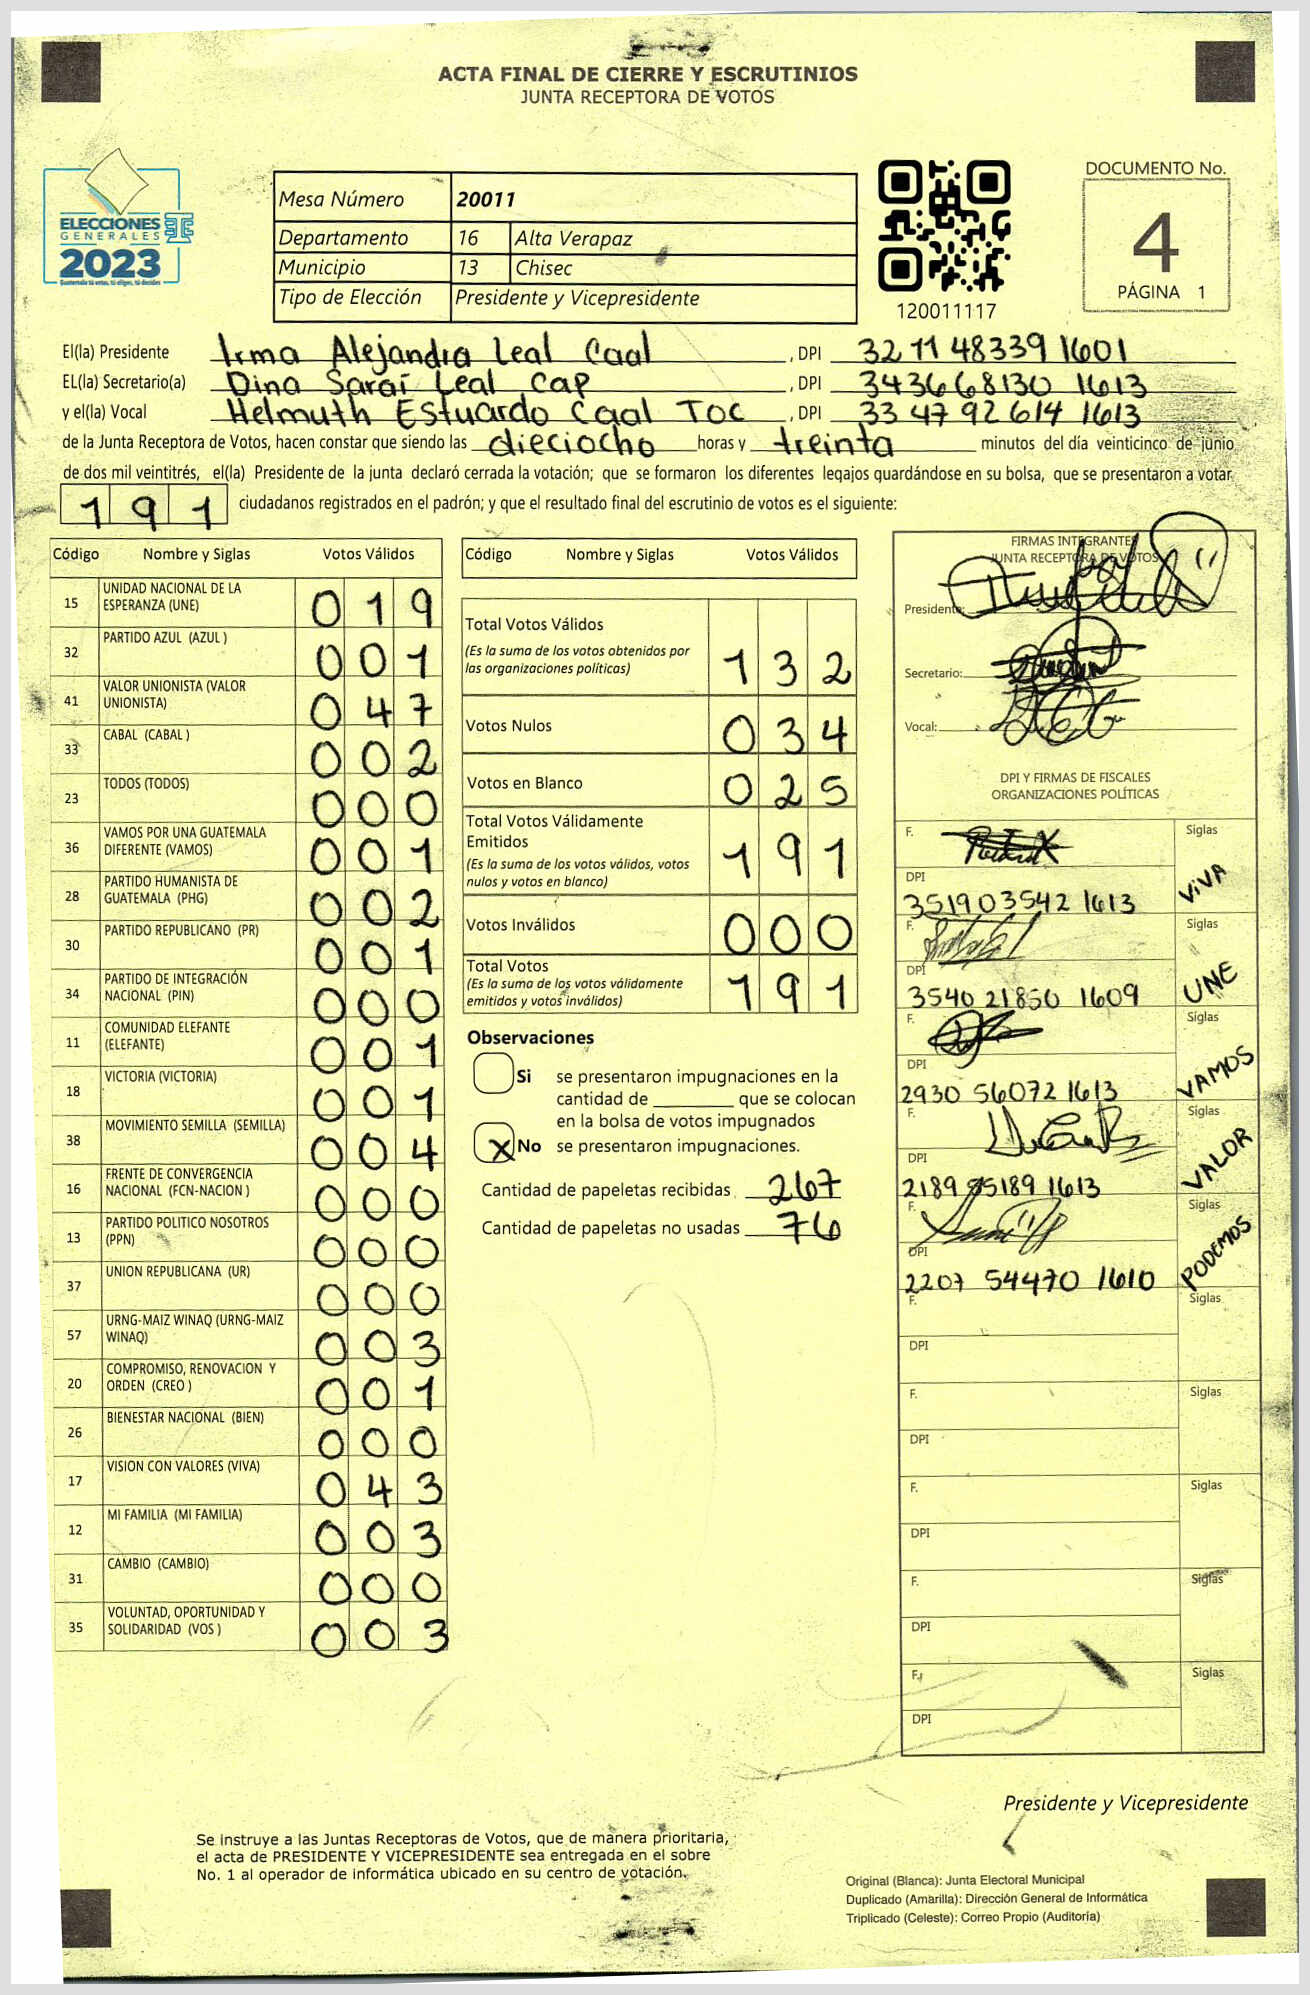 ACTA FINAL DE CIERRE Y ESCRUTINIOS
JUNTA RECEPTORA DE VOTOS
ELECCIONES
GENERALES
2023
Guatemala tú votas, tú eliges, tú decides
Mesa Número 20011
Departamento 16 Alta Verapaz
Municipio 13 Chisec
Tipo de Elección Presidente y Vicepresidente
120011117
DOCUMENTO No.
4
PÁGINA 1
El(la) Presidente Irma Alejandra Leal Caal , DPI 3211 48339 1601
EL(la) Secretario(a) Dina Saraí Leal Cap , DPI 343668130 1613
y el(la) Vocal Helmuth Estuardo Caal Toc , DPI 33 47 92614 1613
de la Junta Receptora de Votos, hacen constar que siendo las dieciocho horas y treinta minutos del día veinticinco de junio
de dos mil veintitrés, el(la) Presidente de la junta declaró cerrada la votación; que se formaron los diferentes legajos guardándose en su bolsa, que se presentaron a votar
191 ciudadanos registrados en el padrón; y que el resultado final del escrutinio de votos es el siguiente:
Código Nombre y Siglas Votos Válidos
15 UNIDAD NACIONAL DE LA ESPERANZA (UNE) 019
32 PARTIDO AZUL (AZUL ) 001
41 VALOR UNIONISTA (VALOR UNIONISTA) 047
33 CABAL (CABAL ) 002
23 TODOS (TODOS) 000
36 VAMOS POR UNA GUATEMALA DIFERENTE (VAMOS) 001
28 PARTIDO HUMANISTA DE GUATEMALA (PHG) 002
30 PARTIDO REPUBLICANO (PR) 001
34 PARTIDO DE INTEGRACIÓN NACIONAL (PIN) 000
11 COMUNIDAD ELEFANTE (ELEFANTE) 001
18 VICTORIA (VICTORIA) 001
38 MOVIMIENTO SEMILLA (SEMILLA) 004
16 FRENTE DE CONVERGENCIA NACIONAL (FCN-NACION ) 000
13 PARTIDO POLITICO NOSOTROS (PPN) 000
37 UNION REPUBLICANA (UR) 000
57 URNG-MAIZ WINAQ (URNG-MAIZ WINAQ) 003
20 COMPROMISO, RENOVACION Y ORDEN (CREO ) 001
26 BIENESTAR NACIONAL (BIEN) 000
17 VISION CON VALORES (VIVA) 043
12 MI FAMILIA (MI FAMILIA) 003
31 CAMBIO (CAMBIO) 000
35 VOLUNTAD, OPORTUNIDAD Y SOLIDARIDAD (VOS ) 003
Código Nombre y Siglas Votos Válidos
Total Votos Válidos
(Es la suma de los votos obtenidos por las organizaciones políticas) 132
Votos Nulos 034
Votos en Blanco 025
Total Votos Válidamente Emitidos
(Es la suma de los votos válidos, votos nulos y votos en blanco) 191
Votos Inválidos 000
Total Votos
(Es la suma de los votos válidamente emitidos y votos inválidos) 191
Observaciones
Si se presentaron impugnaciones en la
cantidad de ________ que se colocan
en la bolsa de votos impugnados
X No se presentaron impugnaciones.
Cantidad de papeletas recibidas 267
Cantidad de papeletas no usadas 76
FIRMAS INTEGRANTES
JUNTA RECEPTORA DE VOTOS
Presidente:
Secretario:
Vocal:
DPI Y FIRMAS DE FISCALES
ORGANIZACIONES POLÍTICAS
F. Siglas
DPI VIVA
351903542 1613
F. Siglas
DPI UNE
3540 21850 1609
F. Siglas
DPI VAMOS
2930 56072 1613
F. Siglas
DPI VALOR
2189 85189 1613
F. Siglas
DPI PODEMOS
2207 54470 1610
F. Siglas
DPI
F. Siglas
DPI
F. Siglas
DPI
F. Siglas
DPI
F. Siglas
DPI
Presidente y Vicepresidente
Se instruye a las Juntas Receptoras de Votos, que de manera prioritaria,
el acta de PRESIDENTE Y VICEPRESIDENTE sea entregada en el sobre
No. 1 al operador de informática ubicado en su centro de votación.
Original (Blanca): Junta Electoral Municipal
Duplicado (Amarilla): Dirección General de Informática
Triplicado (Celeste): Correo Propio (Auditoría)